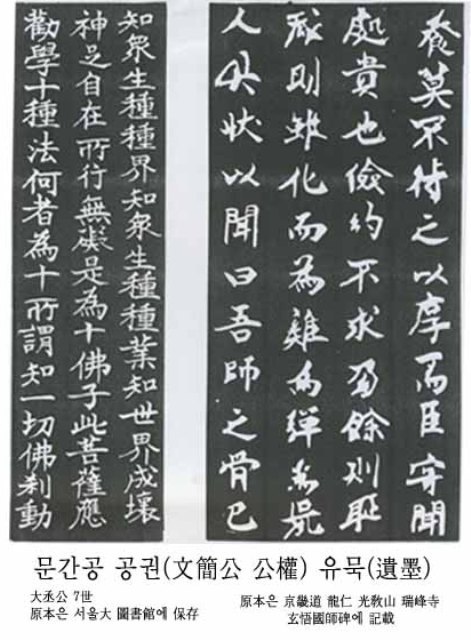 莫不待之以厚而臣聞
處貴也儉約不求餘則耻
則雖化而為雞為彈
人以狀以聞曰吾師之骨已
知衆生種種界知衆生種種業知世界成壞
神足自在所行無礙是為十佛子此菩薩應
勸學十種法何者為十所謂知一切佛刹動
문간공 공권(文簡公 公權) 유묵(遺墨)
大丞公 7世
原本은 서울大 圖書館에 保存
原本은 京畿道 龍仁 光敎山 瑞峰寺
玄悟國師碑에 記載